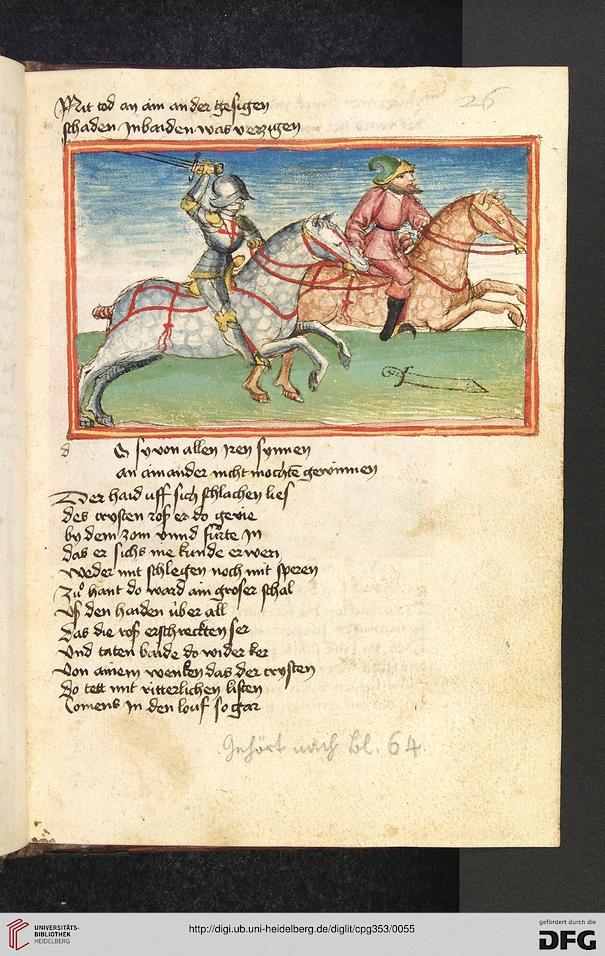 Mit tod an ain ander gesigen
schaden in baiden was verzigen
26
d
So sy von allen Iren synnen
an ainander nicht mochtē gewinnen
Der haid uff sich schlachen lies
des crysten ros er do gevie
by dem zom unnd fůrte In
das er sichs nie kunde erwern
weder mit schlegen noch mit speren
Zů hant do ward ain groser schal
Uf den haiden über all
Das die ros erschreckten ser
Und taten baide do wider ker
Von ainem wenken das der crysten
Do tett mit ritterlichen listen
Comens In den louf so gar
Gehört nach Bl. 64
UNIVERSITÄTS-
BIBLIOTHEK
HEIDELBERG
http://digi.ub.uni-heidelberg.de/diglit/cpg353/0055
gefördert durch die
DFG